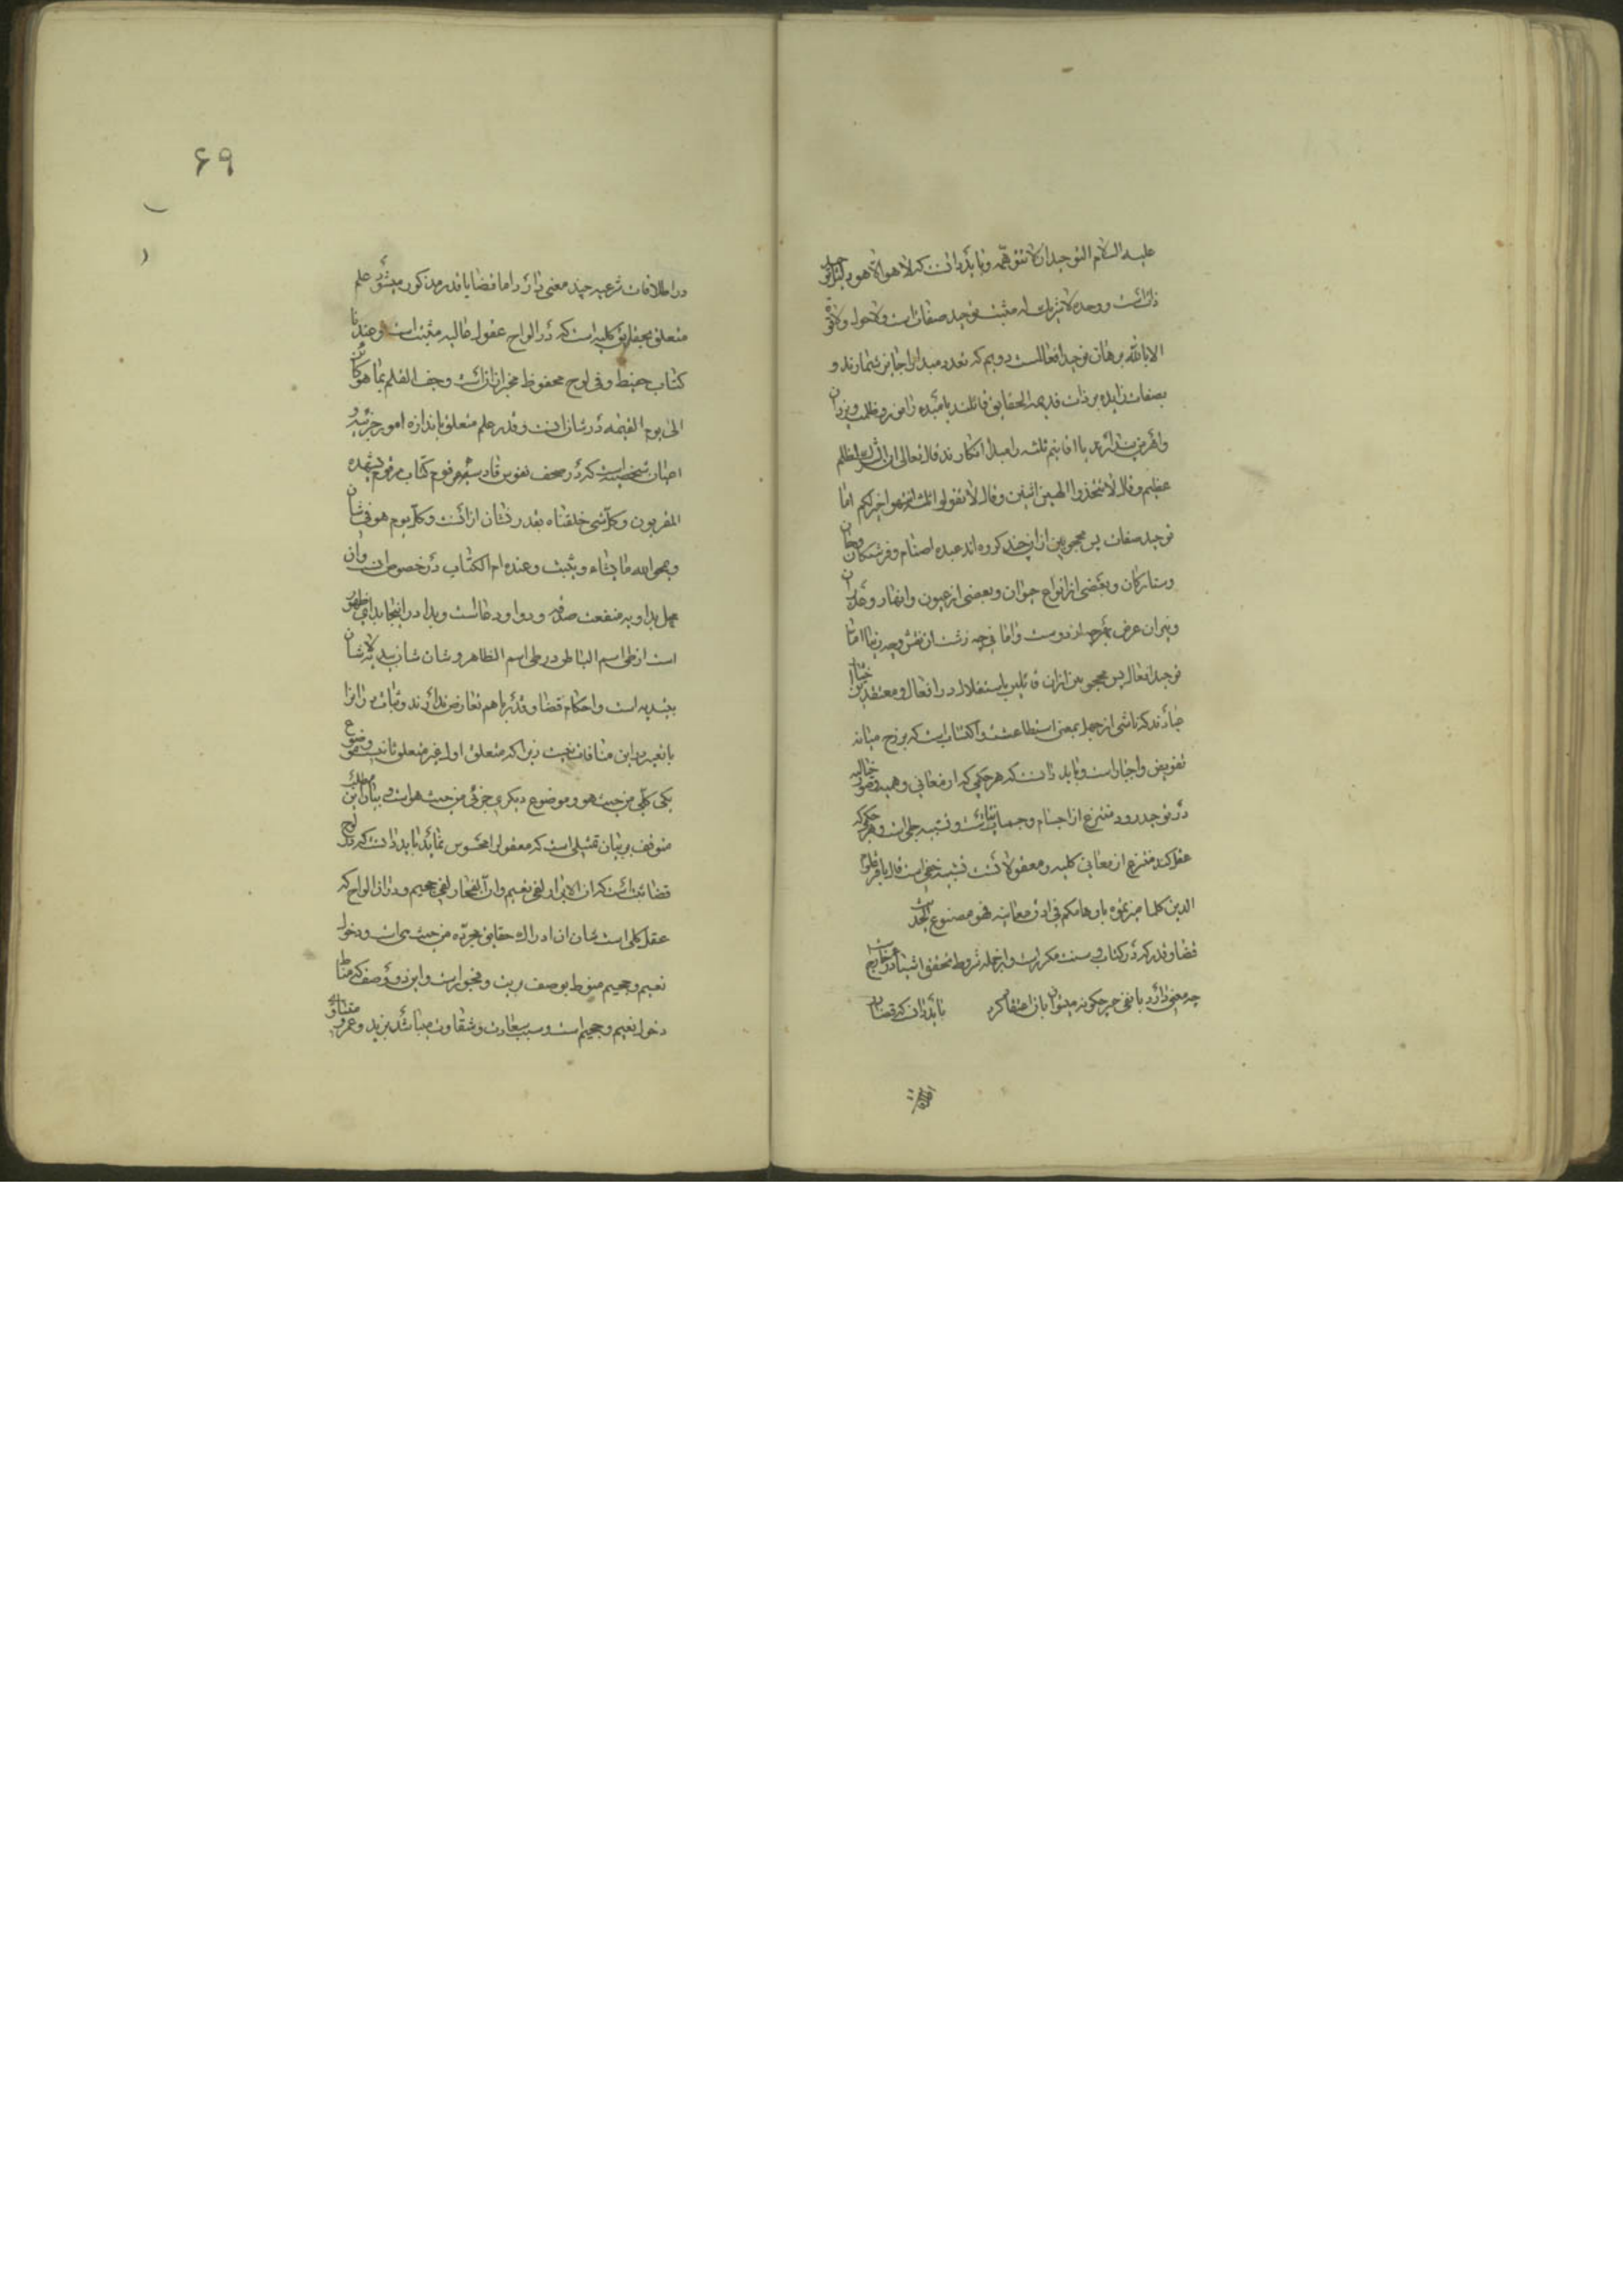 علیه السلام التوحید ان لا تتوهمه و باید دانست که لا هو الا هو دلیل توحید
ذاتست و وحده لا شریک له مثبت توحید صفاتست و لا حول و لا قوة
الا بالله برهان توحید افعالست دویم که تعدد مبدا را جایز شمارند و
بصفات زایده بر ذات قدیمه الحقایق قائلند یا مبدء را نور و ظلمت و یزدان
و اهرمن پندارند یا اقانیم ثلثه را مبدا انکارند قال تعالی ان الشرک لظلم
عظیم و قال لا تتخذوا الهین اثنین و قال لا تقولوا ثلثه انتهوا خیر لکم اما
توحید صفات پس محجوبین از ان چند کروه اند عبده اصنام و فرشتکان و جان
و ستارکان و بعضی از انواع حیوان و بعضی از عیون و انهار و
و نیران عرض هرچه از دوست وامانی چه زشت ان نقش و چه زیبا اما
توحید افعال پس محجوبین از ان قائلین باستقلال در افعال و معتقدین
عبادند که ناشی از جهل بمعنی استطاعتست و اکتسابست که برزخ میانه
تفویض و اجبار است و باید دانست که هر حکمی که از معانی وهمیه و صور خیالیه
در توحید رود منتزع از اجسام و جسمانیاتست و تشبیه جلی است و هر حکم که
عقل کند منتزع از معانی کلیه و معقولاتست تشبیه خفی است قال باقر علوم
الدین کلما میزتموه باوهامکم فی ادق معانیه فهو مصنوع الحدیث
قضا و قدر که در کتاب و سنت مکرر است و از جمله شروط تحقق اشیا در خارج
چه معنی دارد با نفی جبر چکونه میتوان بان اعتقاد کرد باید دانست که قضا
در اطلاقات شرعیه چند معنی دارد اما قضا یا قدر مذکور میشود علم
متعلق بحقایق کلیه است که در الواح عقول عالیه مثبت است و عندنا
کتاب حفیظ و فی لوح محفوظ مخبر از انست و جف القلم بما هو کائن
الی یوم القیمه در شان انست و قدر علم متعلق باندازه امور جزئیه و
اعیان شخصیه است که در صحف نفوس مرقوم کتاب مرقوم یشهده
المقربون و کل شی خلقناه بقدر نشان از انست و کل یوم هو فی شان
و یمحو الله ما یشاء و یثبت و عنده ام الکتاب در خصوص ان و ان
محل بدا و به منفعت صدقه و دوا و دعاست و بدا در اینجا بدایی ظهور
است از طی اسم الباطن در طی اسم الظاهر و شان شان یبدیه لا شان
یبتدیه است و احکام قضا و قدر با هم تعارض ندارند و ثبات مر انرا
با تغییر این منافات نیست زیرا که متعلق اول غیر متعلق ثانیست موضوع
یکی کلی من حیث هو و موضوع دیکری جزئی من حیث هو است و بیان این مطلب
متوقف بر بیان تمثیلی است که معقول را محسوس نماید باید دانست که در لوح
قضا ثبت است که ان الابرار لفی نعیم و ان الفجار لفی جحیم و در ان الواح که
عقل کلی است شان ان ادراک حقایق مجرده من حیث هی است و دخول
نعیم و جحیم منوط بوصف بریت و فجور است و این دو وصف که مناط
دخول نعیم و جحیم است و سبب سعادت و شقاوت میباشد بزید و عمرو
۶۹